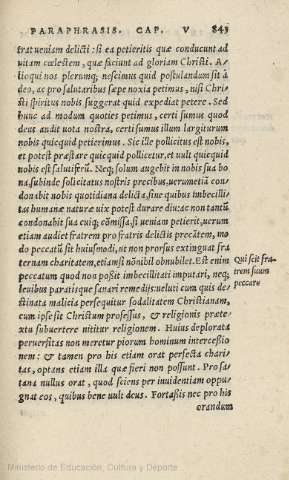 PARAPHRASIS. CAP. V 843
trat ueniam delicti: si ea petieritis quæ conducant ad
uitam cœlestem, quæ faciunt ad gloriam Christi. A-
lioqui nos plerunq; nescimus quid postulandum sit à
deo, ac pro salutaribus sæpe noxia petimus, nisi Chri
sti spiritus nobis suggerat quid expediat petere. Sed
hunc ad modum quoties petimus, certi sumus quod
deus audit uota nostra, certi sumus illum largiturum
nobis quicquid petierimus. Sic ille pollicitus est nobis,
et potest præstare quicquid pollicetur, et uult quicquid
nobis est salutiferũ. Neq; solum augebit in nobis sua bo
na, subinde solicitatus nostris precibus, uerumetiã con
donabit nobis quotidiana delicta, sine quibus imbecilli
tas humanæ naturæ uix potest durare diu: ac non tantũ
condonabit sua cuiq; cõmissa, si ueniam petierit, uerum
etiam audiet fratrem pro fratris delictis precãtem, mo
do peccatũ sit huiusmodi, ut non prorsus extinguat fra
ternam charitatem, etiamsi nõnibil obnubilet. Est enim
peccatum quod non possit imbecillitati imputari, neq;
leuibus paratisque sanari remedijs: ueluti cum quis de-
stinata malicia persequitur sodalitatem Christianam,
cum ipse sit Christum professus, & religionis præte-
xtu subuertere nititur religionem. Huius deplorata
peruersitas non meretur piorum hominum intercessio
nem: & tamen pro his etiam orat perfecta chari-
tas, optans etiam illa quæ fieri non possunt. Pro sa-
tana nullus orat, quod sciens per inuidentiam oppu-
gnat eos, quibus bene uult deus. Fortassis nec pro his
orandum
Qui scit fra-
trem suum
peccare
Ministerio de Educación, Cultura y Deporte